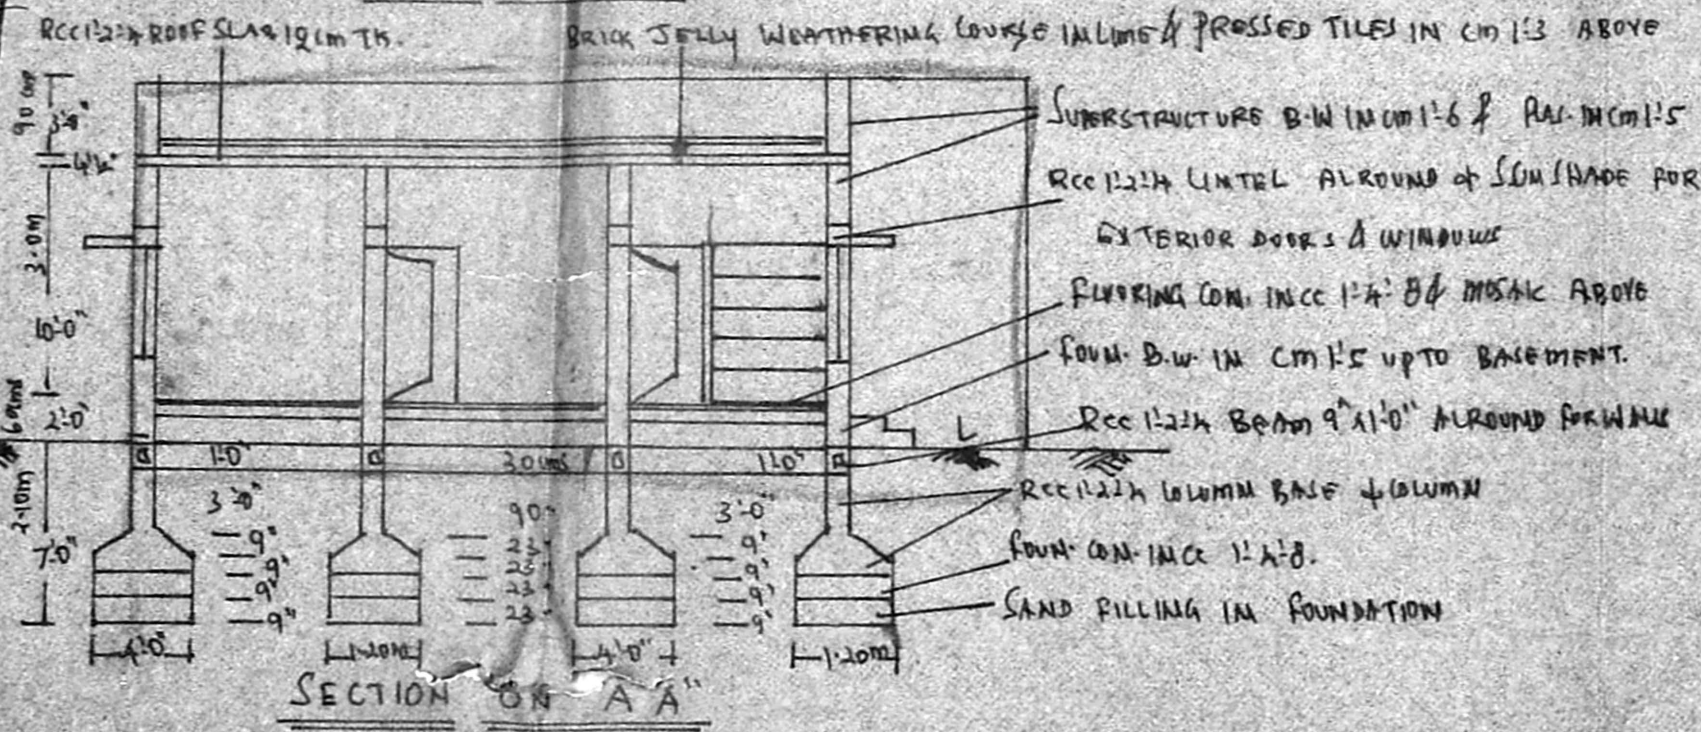 RCC 1:2:4 ROOF SLAB 12 cm TK.
BRICK JELLY WEATHERING COURSE IN LIME & PRESSED TILES IN CM 1:3 ABOVE
90 cm
3'-0"
4½"
3.0m
6'-0"
60cms
2'-0"
2.10m
7'-0"
SUPERSTRUCTURE B.W IN CM 1:6 & PLAS. IN CM 1:5
RCC 1:2:4 LINTEL ALROUND & SUNSHADE FOR
EXTERIOR DOORS & WINDOWS
FLOORING CON. IN CC 1:4:8 & MOSAIC ABOVE
FOUN. B.W. IN CM 1:5 UPTO BASEMENT.
RCC 1:2:4 BEAM 9"X1'-0" ALROUND FOR WALLS
RCC 1:2:4 COLUMN BASE & COLUMN
FOUN. CON. IN CC 1:4:8.
SAND FILLING IN FOUNDATION
L
1'-0"
30cms
1'-0"
3'-0"
9"
9"
9"
9"
90"
23"
23"
23"
23"
3'-0"
9"
9"
9"
9"
4'-0"
1.20m
4'-0"
1.20m
SECTION ON A A"